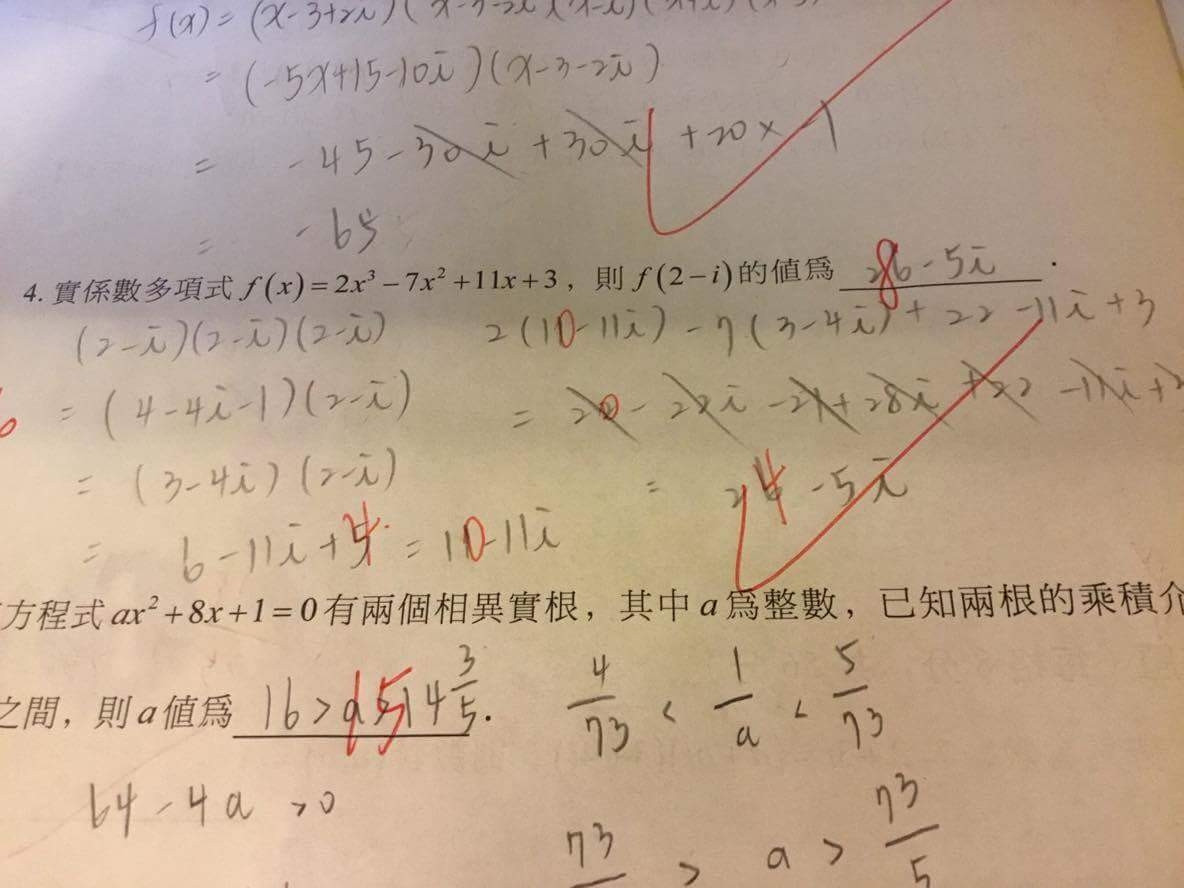 f(x) = (x-3+2i)(x-3-2i)(x-i)(x+i)
= (-5x+15-10i)(x-3-2i)
= -45-30i+30i+20x-1
= -65
4. 實係數多項式 f(x)=2x³-7x²+11x+3，則 f(2-i) 的值為 28-5i .
(2-i)(2-i)(2-i) 2(10-11i)-7(3-4i)+22-11i+3
= (4-4i-1)(2-i) = 20-22i-21+28i+22-11i+
= (3-4i)(2-i) = 24-5i
= 6-11i+4 = 10-11i
方程式 ax²+8x+1=0 有兩個相異實根，其中 a 為整數，已知兩根的乘積介
之間，則 a 值為 16>a>14 3/5 . 15 4/73 < 1/a < 5/73
64-4a>0
73 > a > 73/5